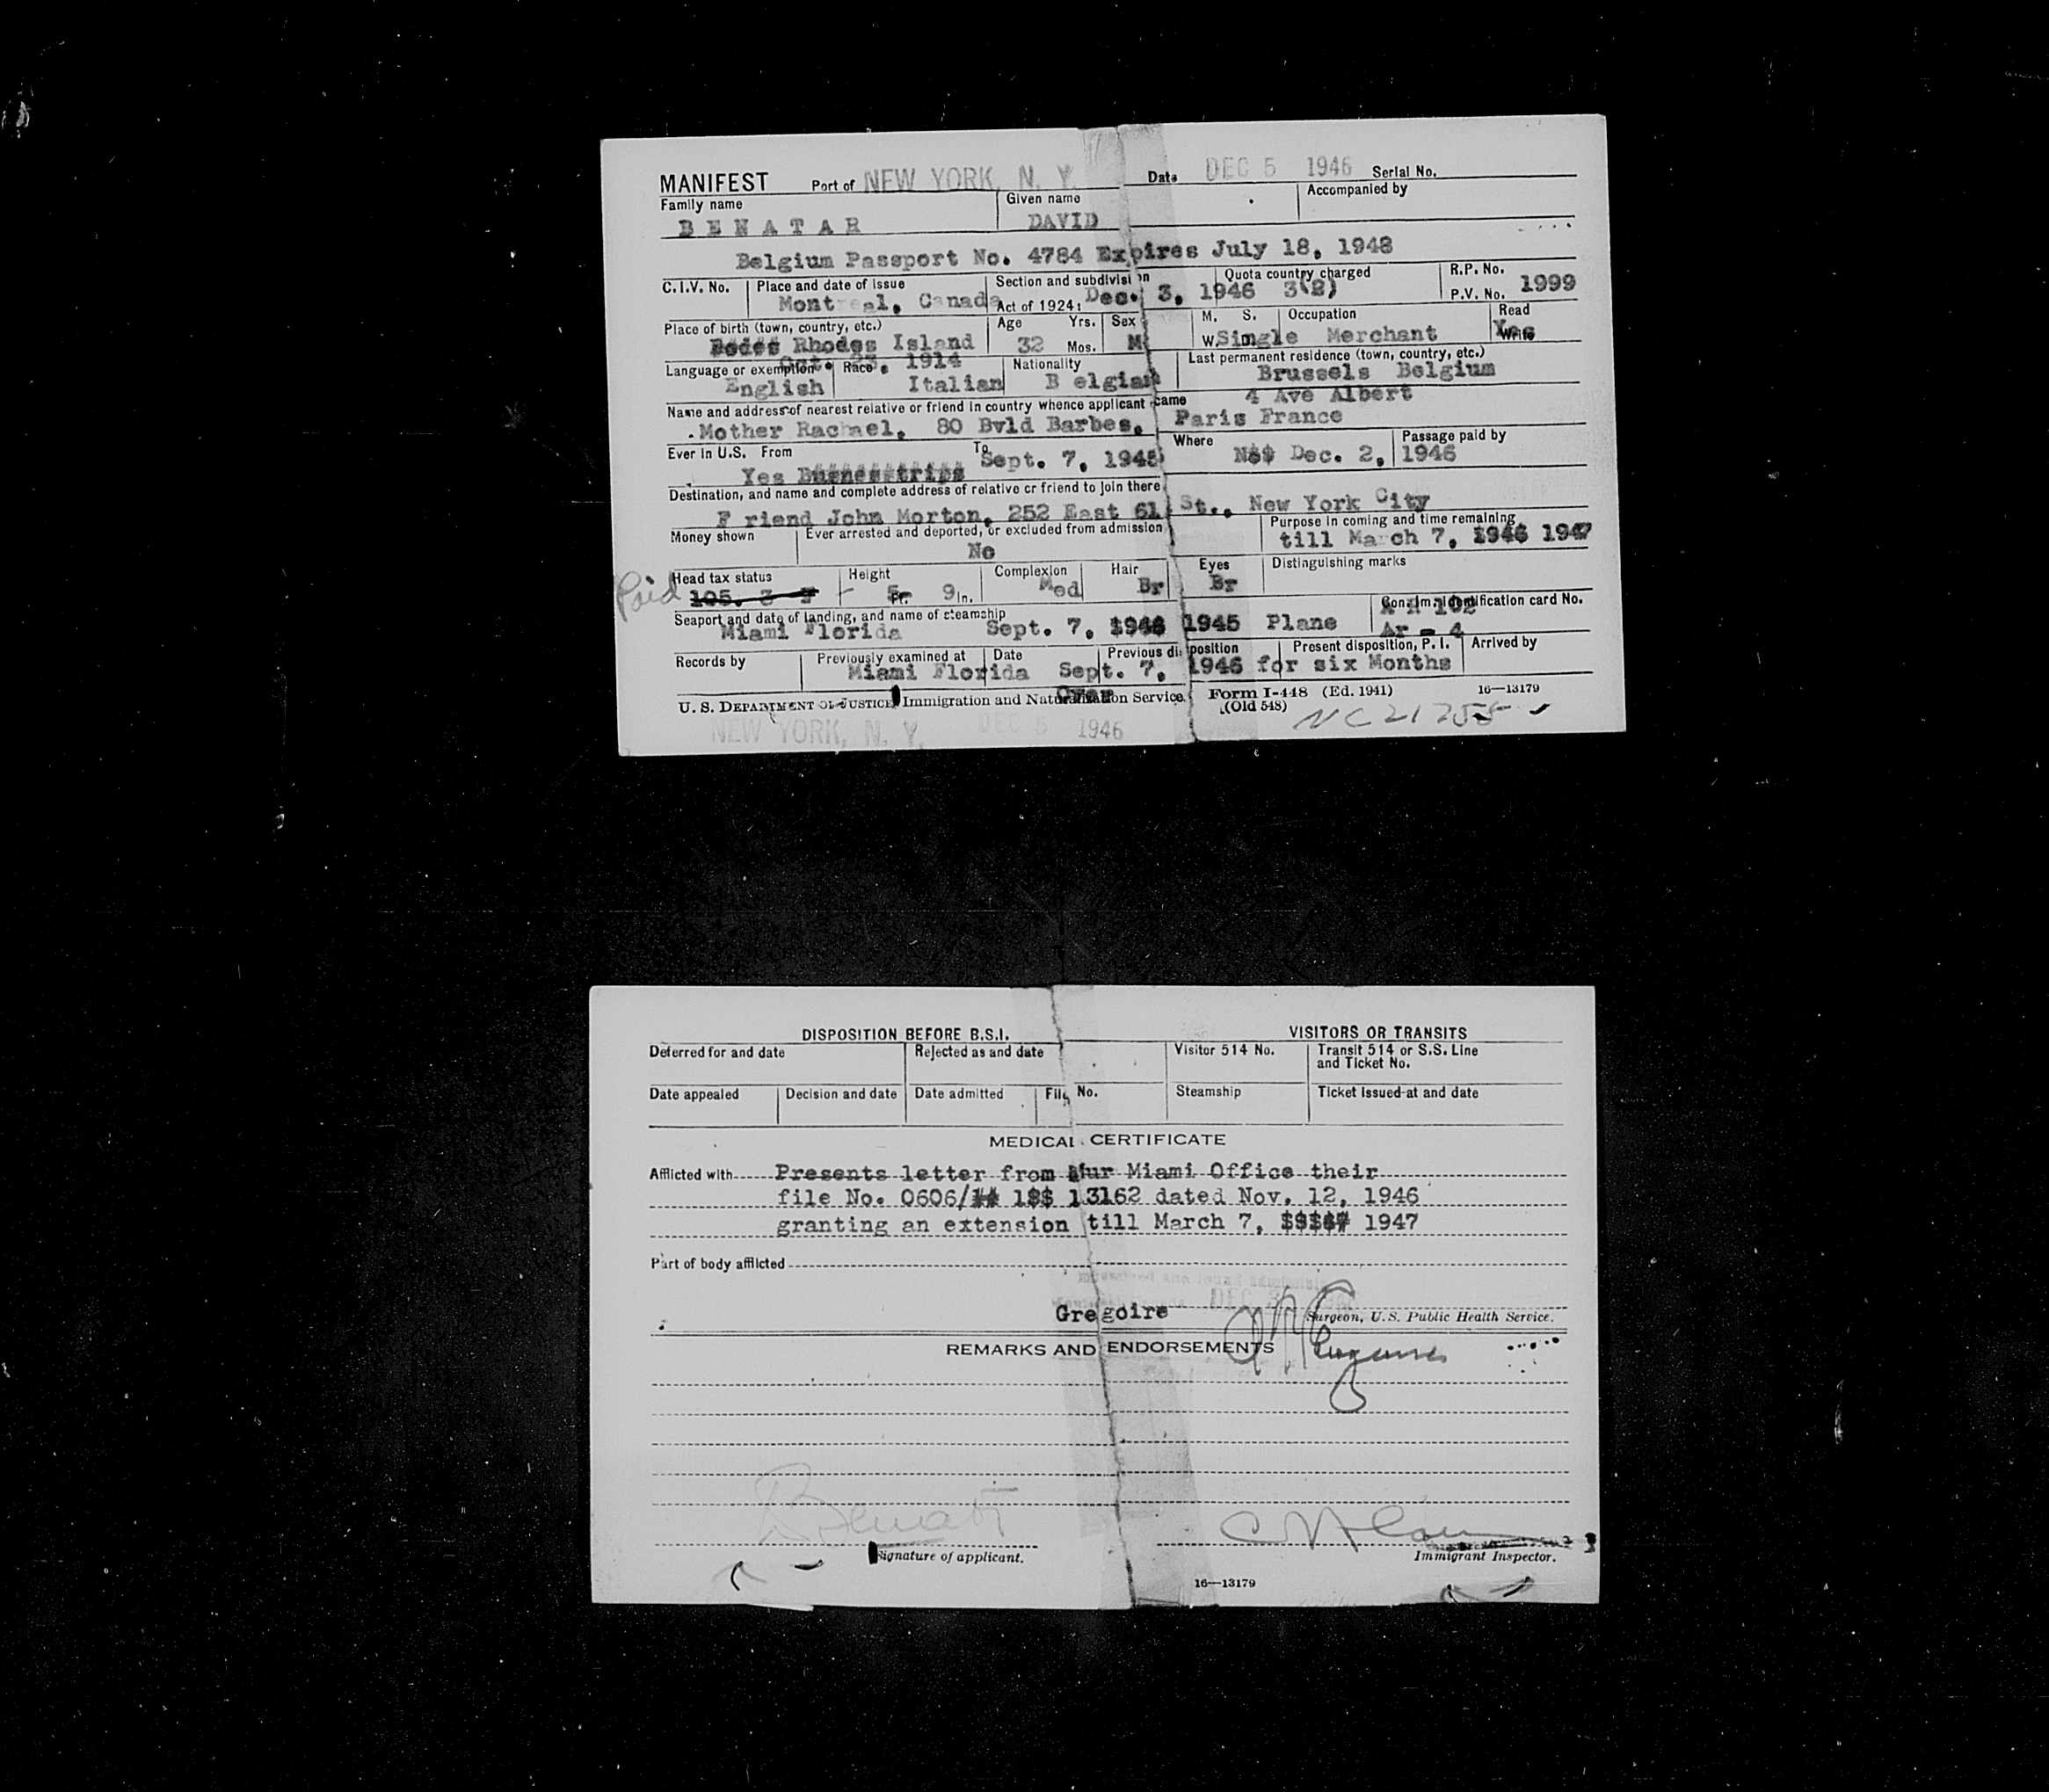 MANIFEST Port of NEW YORK, N. Y. Date DEC 5 1946 Serial No.
Family name Given name Accompanied by
BENATAR DAVID
Belgium Passport No. 4784 Expires July 18, 1948
C.I.V. No. Place and date of issue Section and subdivision Quota country charged R.P. No.
Montreal, Canada Act of 1924: Dec. 3, 1946 3(2) P.V. No. 1999
Place of birth (town, country, etc.) Age Yrs. Sex M. S. Occupation Read
Rhodes Island 32 Mos. M W. Single Merchant Yes Write
Oct. 23, 1914
Language or exemption Race Nationality Last permanent residence (town, country, etc.)
English Italian B elgian Brussels Belgium
Name and address of nearest relative or friend in country whence applicant came 4 Ave Albert
Mother Rachael, 80 Bvld Barbes, Paris France
Ever in U.S. From To Where Passage paid by
Yes Sept. 7, 1945 Dec. 2, 1946
Destination, and name and complete address of relative or friend to join there
F riend John Morton, 252 East 61 St., New York City
Money shown Ever arrested and deported, or excluded from admission Purpose in coming and time remaining
No till March 7, 1946 1947
Paid Head tax status Height Complexion Hair Eyes Distinguishing marks
105. 3 Ft. 9 In. Med Br Br
Seaport and date of landing, and name of steamship Identification card No.
Miami Florida Sept. 7, 1946 1945 Plane Ar - 4
Records by Previously examined at Date Previous disposition Present disposition, P. I. Arrived by
Miami Florida Sept. 7, 1946 for six Months
Over
U. S. DEPARTMENT OF JUSTICE, Immigration and Naturalization Service. Form I-448 (Ed. 1941) 16—13179
(Old 548) NC 21755
NEW YORK, N. Y. DEC 5 1946
DISPOSITION BEFORE B.S.I. VISITORS OR TRANSITS
Deferred for and date Rejected as and date Visitor 514 No. Transit 514 or S.S. Line
and Ticket No.
Date appealed Decision and date Date admitted File No. Steamship Ticket issued at and date
MEDICAL CERTIFICATE
Afflicted with Presents letter from Miami Office their
file No. 0606/ 13162 dated Nov. 12, 1946
granting an extension till March 7, 1947
Part of body afflicted
DEC
Gregoire Surgeon, U.S. Public Health Service.
REMARKS AND ENDORSEMENTS
Signature of applicant. Immigrant Inspector.
16—13179